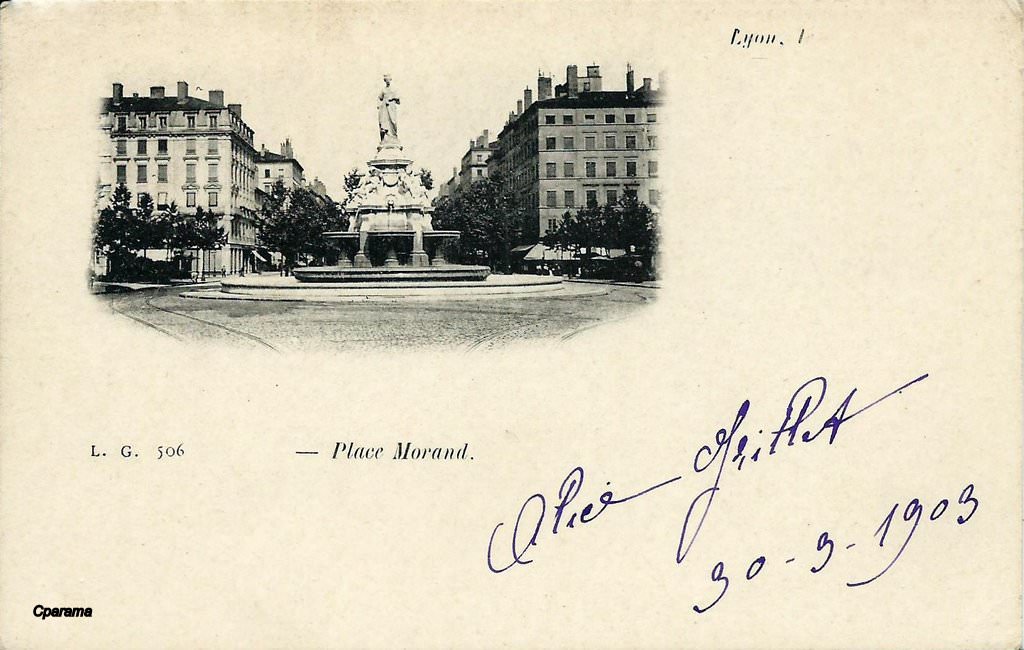 Lyon. l
L. G. 506 — Place Morand.
Alice Grillet
30-3-1903
Cparama